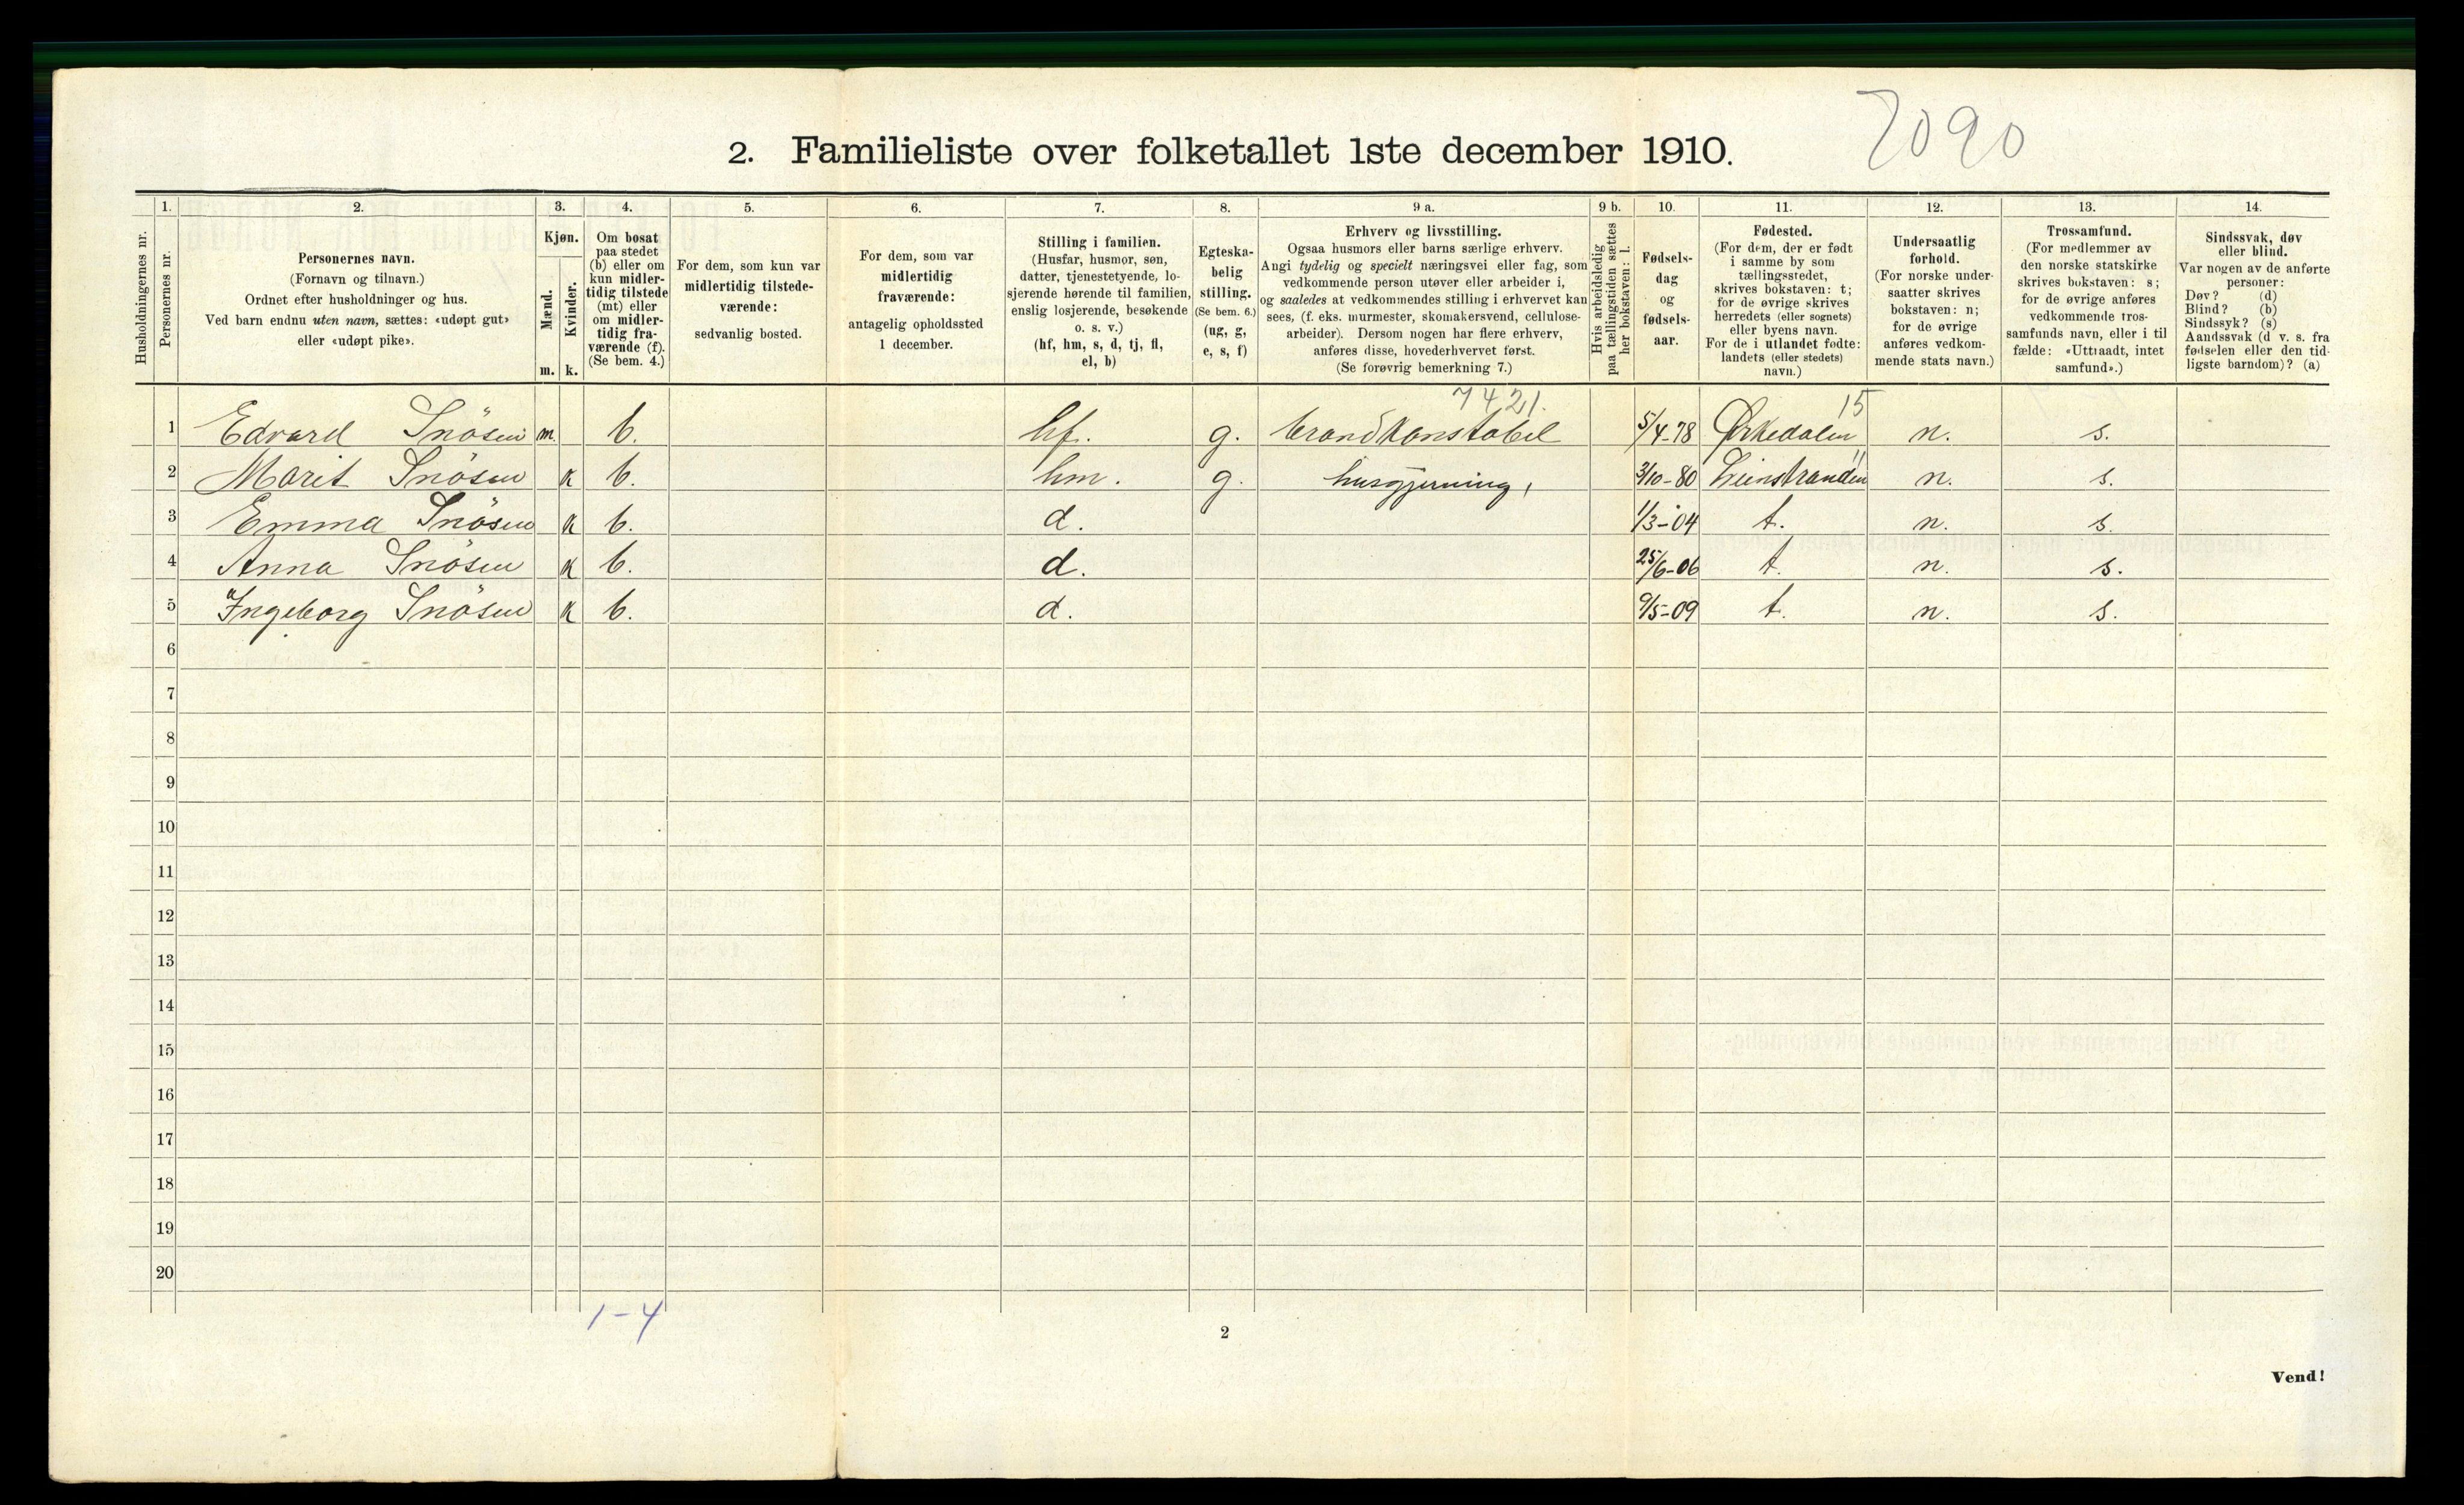 7090
2. Familieliste over folketallet 1ste december 1910.
Husholdningernes nr.
1. Personernes nr.
2. Personernes navn.
(Fornavn og tilnavn.)
Ordnet efter husholdninger og hus.
Ved barn endnu uten navn, sættes: «udøpt gut»
eller «udøpt pike».
3. Kjøn.
Mænd. m.
Kvinder. k.
4. Om bosat
paa stedet
(b) eller om
kun midler-
tidig tilstede
(mt) eller
om midler-
tidig fra-
værende (f).
(Se bem. 4.)
5. For dem, som kun var
midlertidig tilstede-
værende:
sedvanlig bosted.
6. For dem, som var
midlertidig
fraværende:
antagelig opholdssted
1 december.
7. Stilling i familien.
(Husfar, husmor, søn,
datter, tjenestetyende, lo-
sjerende hørende til familien,
enslig losjerende, besøkende
o. s. v.)
(hf, hm, s, d, tj, fl,
el, b)
8. Egteska-
belig
stilling.
(Se bem. 6.)
(ug, g,
e, s, f)
9 a. Erhverv og livsstilling.
Ogsaa husmors eller barns særlige erhverv.
Angi tydelig og specielt næringsvei eller fag, som
vedkommende person utøver eller arbeider i,
og saaledes at vedkommendes stilling i erhvervet kan
sees, (f. eks. murmester, skomakersvend, cellulose-
arbeider). Dersom nogen har flere erhverv,
anføres disse, hovederhvervet først.
(Se forøvrig bemerkning 7.)
9 b. Hvis arbeidsledig
paa tællingstiden sættes
her bokstaven: l.
10. Fødsels-
dag
og
fødsels-
aar.
11. Fødested.
(For dem, der er født
i samme by som
tællingsstedet,
skrives bokstaven: t;
for de øvrige skrives
herredets (eller sognets)
eller byens navn.
For de i utlandet fødte:
landets (eller stedets)
navn.)
12. Undersaatlig
forhold.
(For norske under-
saatter skrives
bokstaven: n;
for de øvrige
anføres vedkom-
mende stats navn.)
13. Trossamfund.
(For medlemmer av
den norske statskirke
skrives bokstaven: s;
for de øvrige anføres
vedkommende tros-
samfunds navn, eller i til
fælde: «Uttraadt, intet
samfund».)
14. Sindssvak, døv
eller blind.
Var nogen av de anførte
personer:
Døv? (d)
Blind? (b)
Sindssyk? (s)
Aandssvak (d v. s. fra
fødselen eller den tid-
ligste barndom)? (a)
7421. 15
1 Edvard Snösen m. b. hf. g. brandkonstabel 5/4-78 Ørkedalen n. s.
2 Marit Snösen k b. hm. g. husgjerning, 3/10-80 Leinstranden n. s.
3 Emma Snösen k b. d. 1/3-04 t. n. s.
4 Anna Snösen k b. d. 25/6-06 t. n. s.
5 Ingeborg Snösen k b. d. 9/5-09 t. n. s.
6
7
8
9
10
11
12
13
14
15
16
17
18
19
20
1-4
2
Vend!